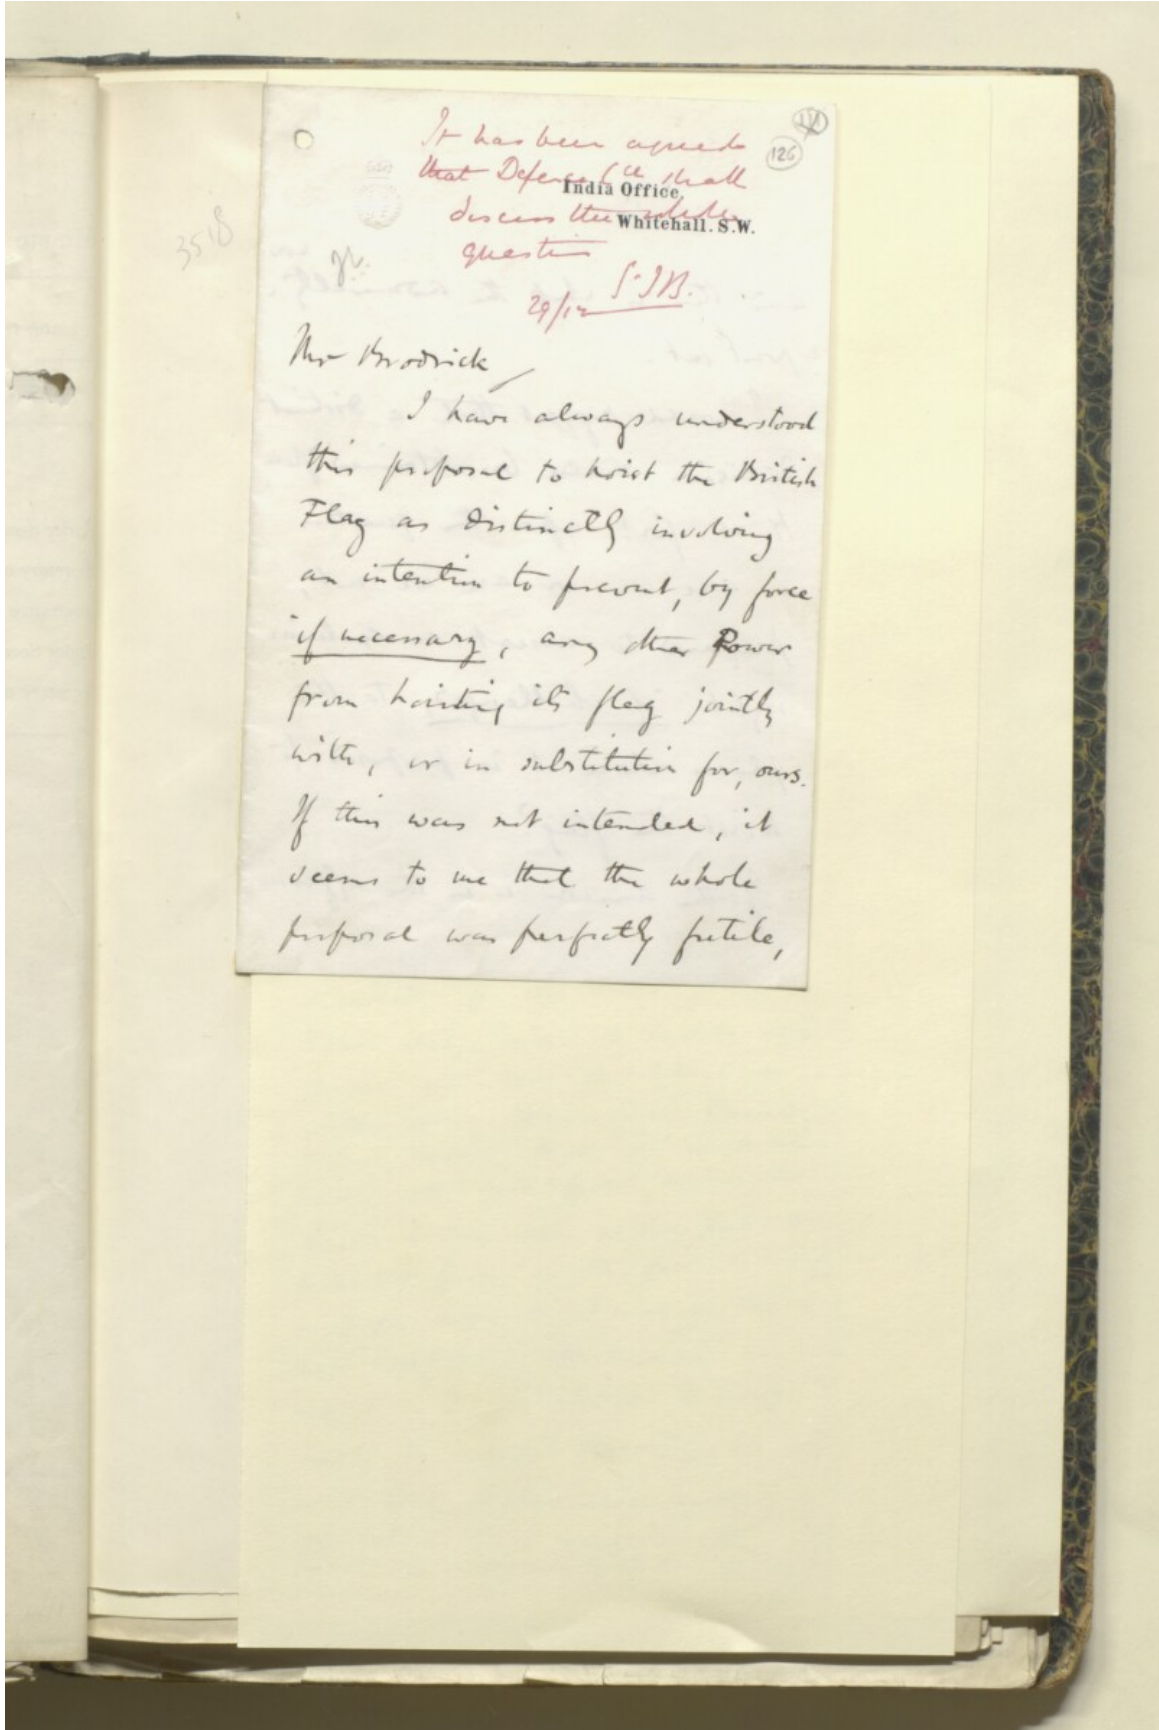 It has been agreed
that Defence Ctee shall
India Office,
discuss the whole
Whitehall. S.W.
question
St J B.
29/12
126
3518
Mr Brodrick
I have always understood
this proposal to hoist the British
Flag as distinctly involving
an intention to prevent, by force
if necessary, any other Power
from hoisting its flag jointly
with, or in substitution for, ours.
If this was not intended, it
seems to me that the whole
proposal was perfectly futile,